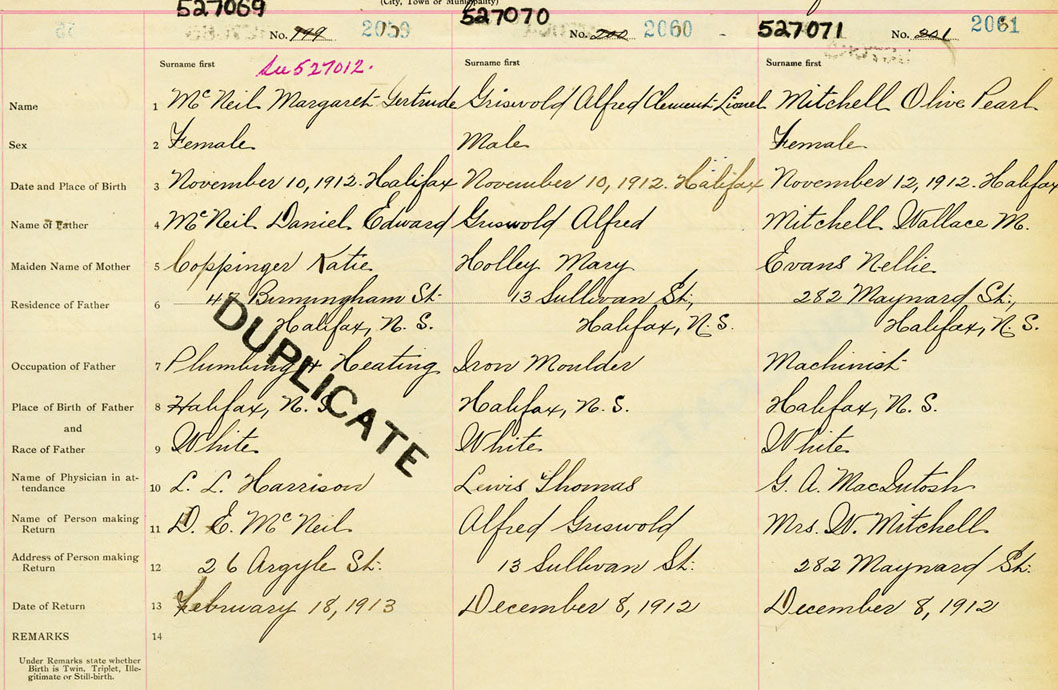 (City, Town or Municipality)
527069 527070 527071
No. 199 2059 No. 200 2060 No. 201 2061
Surname first Surname first Surname first
See 527012.
Name 1 McNeil Margaret Gertrude Griswold Alfred Clement Lionel Mitchell Olive Pearl
Sex 2 Female Male Female
Date and Place of Birth 3 November 10, 1912. Halifax November 10, 1912. Halifax November 12, 1912. Halifax
Name of Father 4 McNeil Daniel Edward Griswold Alfred Mitchell Wallace M.
Maiden Name of Mother 5 Coppinger Katie Holley Mary Evans Nellie
Residence of Father 6 47 Birmingham St. 13 Sullivan St., 282 Maynard St.,
Halifax, N. S. Halifax, N. S. Halifax, N. S.
DUPLICATE
Occupation of Father 7 Plumbing & Heating Iron Moulder Machinist
Place of Birth of Father 8 Halifax, N. S. Halifax, N. S. Halifax, N. S.
and
Race of Father 9 White White White
Name of Physician in at-
tendance 10 L. L. Harrison Lewis Thomas G. A. MacIntosh
Name of Person making
Return 11 D. E. McNeil Alfred Griswold Mrs. W. Mitchell
Address of Person making
Return 12 26 Argyle St. 13 Sullivan St. 282 Maynard St.
Date of Return 13 February 18, 1913 December 8, 1912 December 8, 1912
REMARKS 14
Under Remarks state whether
Birth is Twin, Triplet, Ille-
gitimate or Still-birth.